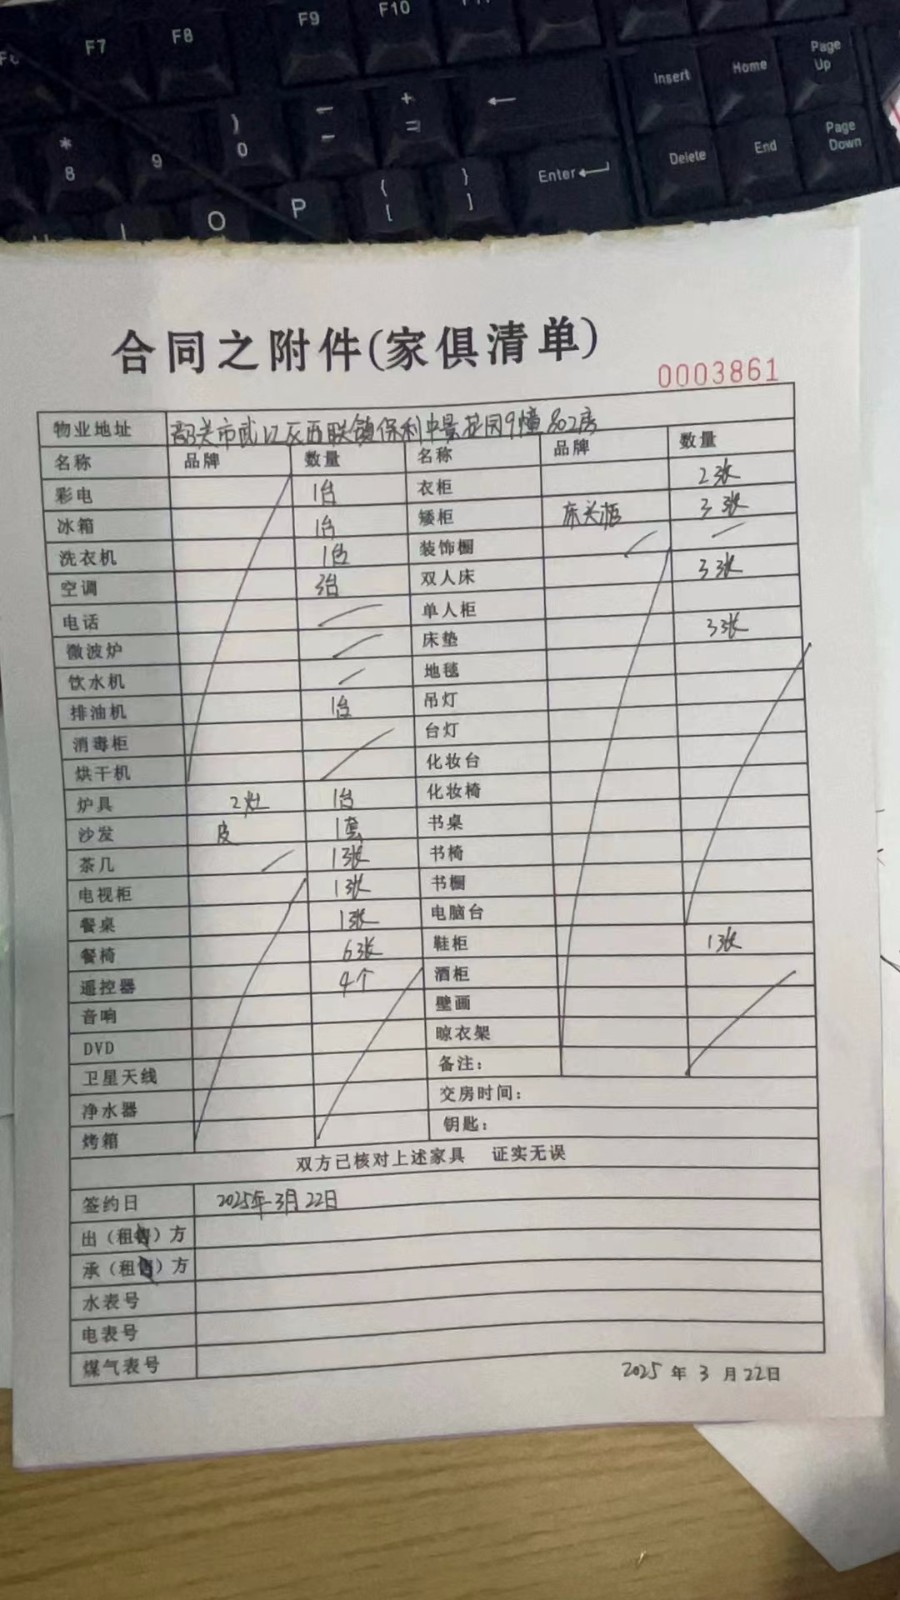 F6 F7 F8 F9 F10 F11
Insert Home Page Up
* 8 9 ) 0 — - + = ←
Delete End Page Down
I O P { [ } ] Enter
合同之附件(家俱清单)
0003861
物业地址 韶关市武江区西联镇保利中景花园9幢802房
名称 品牌 数量 名称 品牌 数量
彩电 1台 衣柜 2张
冰箱 1台 矮柜 床头柜 3张
洗衣机 1台 装饰橱
空调 3台 双人床 3张
电话 单人柜
微波炉 床垫 3张
饮水机 地毯
排油机 1台 吊灯
消毒柜 台灯
烘干机 化妆台
炉具 2灶 1台 化妆椅
沙发 皮 1套 书桌
茶几 1张 书椅
电视柜 1张 书橱
餐桌 1张 电脑台
餐椅 6张 鞋柜 1张
遥控器 4个 酒柜
音响 壁画
DVD 晾衣架
卫星天线 备注：
净水器 交房时间：
烤箱 钥匙：
双方已核对上述家具 证实无误
签约日 2025年3月22日
出（租售）方
承（租售）方
水表号
电表号
煤气表号
2025 年 3 月 22日